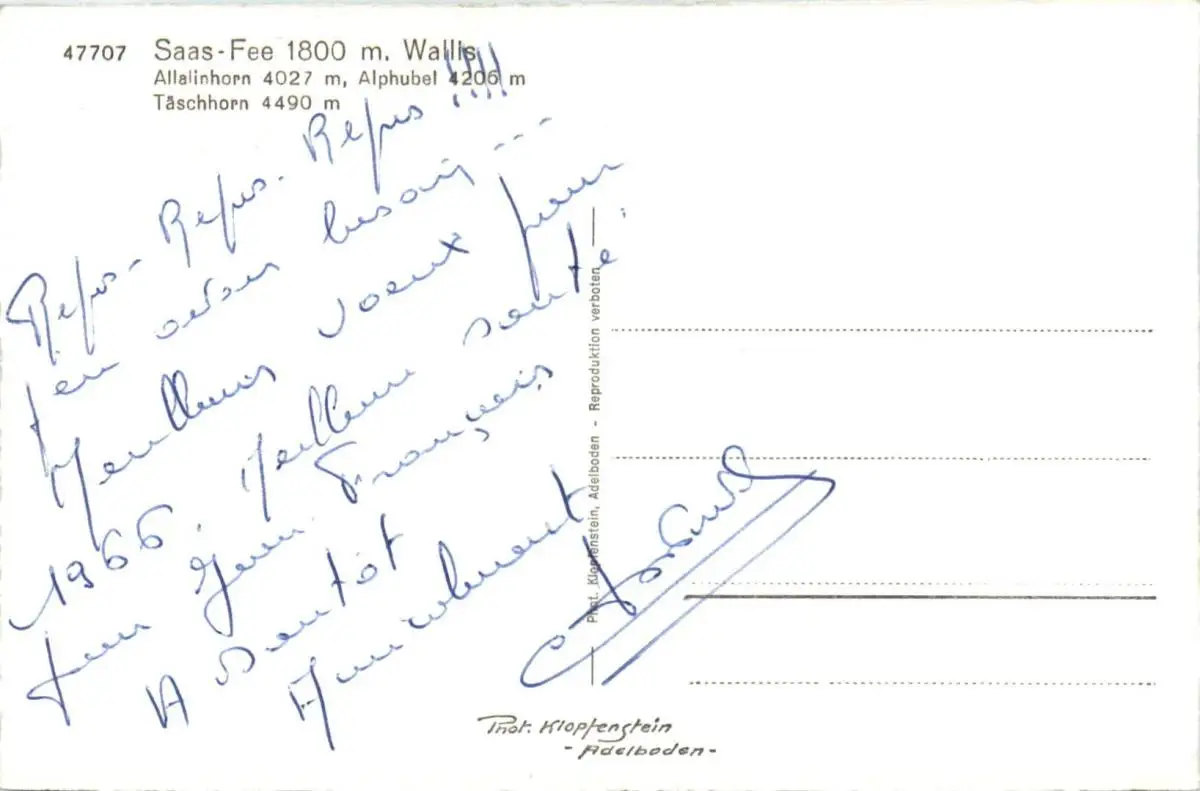 47707 Saas-Fee 1800 m. Wallis
Allalinhorn 4027 m, Alphubel 4206 m
Täschhorn 4490 m
Repos - Repos - Repos !!!!
j'en avais besoin ---
Meilleurs voeux pour
1966. Meilleure santé
pour Jean François
A Bientôt
Amicalement
Phot. Klopfenstein, Adelboden - Reproduktion verboten
Phot. Klopfenstein
- Adelboden -